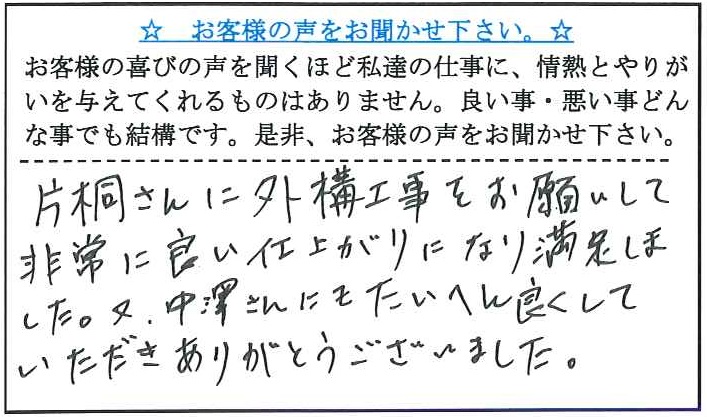 ☆　お客様の声をお聞かせ下さい。☆
お客様の喜びの声を聞くほど私達の仕事に、情熱とやりが
いを与えてくれるものはありません。良い事・悪い事どん
な事でも結構です。是非、お客様の声をお聞かせ下さい。
片桐さんに外構工事をお願いして
非常に良い仕上がりになり満足しま
した。又、中澤さんにもたいへん良くして
いただきありがとうございました。